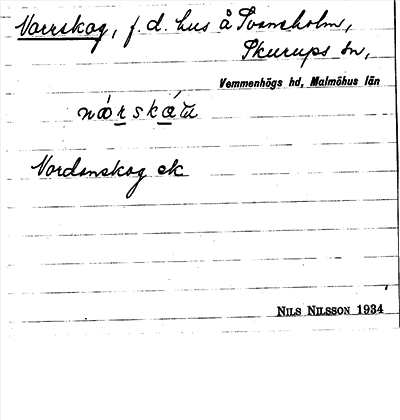 Norrskog, f. d. hus å Svansholm,
Skurups sn,
Vemmenhögs hd, Malmöhus län
Nordanskog ek
NILS NILSSON 1934